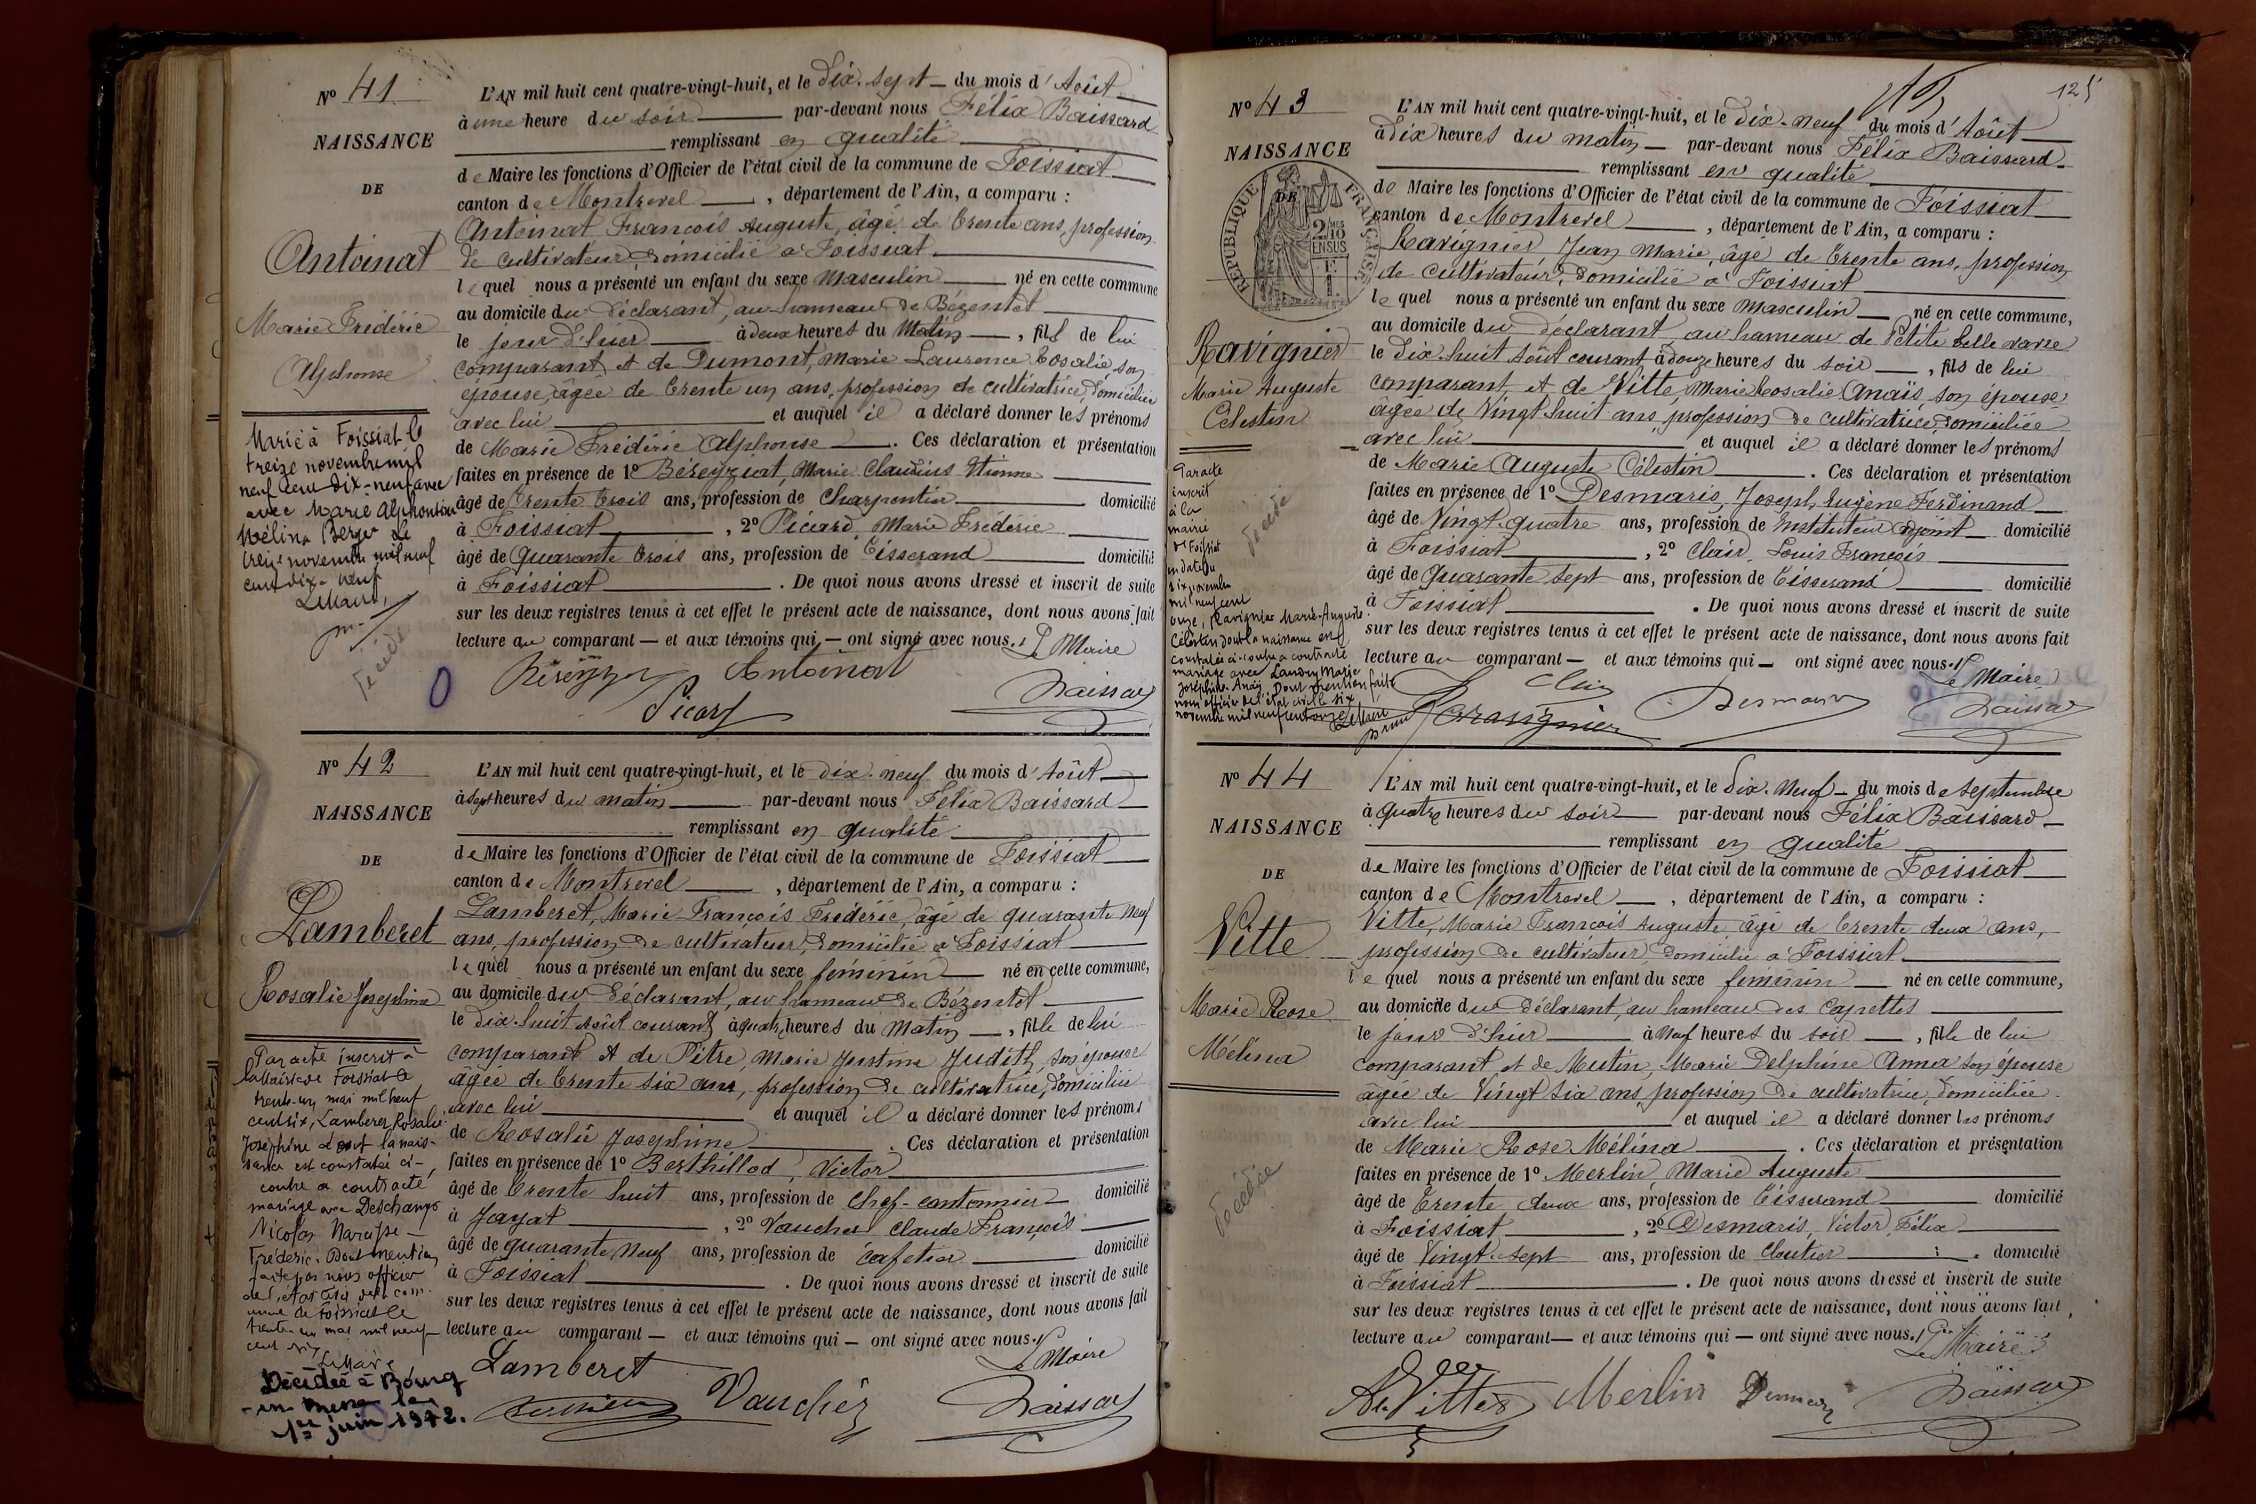 Nº 41
NAISSANCE
DE
Antoinat
Marie Frédéric
Alphonse
Marié à Foissiat le
treize novembre mil
neuf cent dix-neuf avec
avec Marie Alphonsine
Mélina Berger Le
treize novembre mil neuf
cent dix-neuf
Le Maire,
L'AN mil huit cent quatre-vingt-huit, et le dix-sept du mois d'Août
à une heure du soir par-devant nous Félix Baissard
remplissant en qualité
de Maire les fonctions d'Officier de l'état civil de la commune de Foissiat
canton de Montrevel, département de l'Ain, a comparu :
Antoinat François Auguste, âgé de trente ans, profession
de cultivateur, domicilié à Foissiat
lequel nous a présenté un enfant du sexe masculin né en cette commune
au domicile du déclarant, au hameau de Bézentet
le jour d'hier à deux heures du Matin, fils de lui
comparant et de Dumont, Marie Laurence Rosalie, son
épouse, âgée de trente un ans, profession de cultivatrice, domiciliée
avec lui et auquel il a déclaré donner les prénoms
de Marie Frédéric Alphonse. Ces déclaration et présentation
faites en présence de 1º Béreyziat, Marie Claudius Etienne
âgé de trente trois ans, profession de Charpentier domicilié
à Foissiat, 2º Picard, Marie Frédéric
âgé de quarante trois ans, profession de Tisserand domicilié
à Foissiat. De quoi nous avons dressé et inscrit de suite
sur les deux registres tenus à cet effet le présent acte de naissance, dont nous avons fait
lecture au comparant — et aux témoins qui — ont signé avec nous. Le Maire
Antoinat
Picard
Baissard
Nº 42
NAISSANCE
DE
Lamberet
Rosalie Joséphine
Par acte inscrit à
la Mairie de Foissiat le
trente-un mai mil neuf
cent six, Lamberet Rosalie
Joséphine dont la nais-
sance est constatée ci-
contre a contracté
mariage avec Deschamps
Nicolas Narcisse
Frédéric. Dont mention
faite par nous officier
de l'état civil de la com-
mune de Foissiat le
trente-un mai mil neuf
cent six
Le Maire
Décédée à Bourg
-en-Bresse le
1er juin 1972.
L'AN mil huit cent quatre-vingt-huit, et le dix-neuf du mois d'Août
à sept heures du matin par-devant nous Félix Baissard
remplissant en qualité
de Maire les fonctions d'Officier de l'état civil de la commune de Foissiat
canton de Montrevel, département de l'Ain, a comparu :
Lamberet, Marie François Frédéric, âgé de quarante neuf
ans, profession de cultivateur, domicilié à Foissiat
lequel nous a présenté un enfant du sexe féminin né en cette commune,
au domicile du déclarant, au hameau de Bézentet
le dix-huit Août courant à quatre heures du Matin, fille de lui
comparant et de Pitre, Marie Justine Judith, son épouse
âgée de trente six ans, profession de cultivatrice, domiciliée
avec lui et auquel il a déclaré donner les prénoms
de Rosalie Joséphine. Ces déclaration et présentation
faites en présence de 1º Berthillod, Victor
âgé de trente huit ans, profession de Chef-cantonnier domicilié
à Jayat, 2º Vaucher Claude François
âgé de quarante neuf ans, profession de cafetier domicilié
à Foissiat. De quoi nous avons dressé et inscrit de suite
sur les deux registres tenus à cet effet le présent acte de naissance, dont nous avons fait
lecture au comparant — et aux témoins qui — ont signé avec nous.
Le Maire
Lamberet
Vaucher
Baissard
125
Nº 43
NAISSANCE
DE
RÉPUBLIQUE FRANÇAISE
2/10 EN SUS
Ravignier
Marie Auguste
Célestin
Par acte
inscrit
à la
mairie
de Foissiat
en date du
six novembre
mil neuf cent
onze, Ravignier Marie-Auguste
Célestin dont la naissance est
constatée ci-contre a contracté
mariage avec Laudry Marie
Joséphine-Anaïs. Dont mention faite
nous officier de l'état civil le six
novembre mil neuf cent onze Le Maire
Décédé
L'AN mil huit cent quatre-vingt-huit, et le dix-neuf du mois d'Août
à dix heures du matin par-devant nous Félix Baissard
remplissant en qualité
de Maire les fonctions d'Officier de l'état civil de la commune de Foissiat
canton de Montrevel, département de l'Ain, a comparu :
Ravignier Jean Marie, âgé de trente ans, profession
de cultivateur, domicilié à Foissiat
lequel nous a présenté un enfant du sexe masculin né en cette commune,
au domicile du déclarant au hameau de Petite
le dix-huit Août courant à douze heures du soir, fils de lui
comparant et de Vitte, Marie Rosalie Anaïs son épouse
âgée de vingt huit ans, profession de cultivatrice, domiciliée
avec lui et auquel il a déclaré donner les prénoms
de Marie Auguste Célestin. Ces déclaration et présentation
faites en présence de 1º Desmaris, Joseph Eugène Ferdinand
âgé de vingt quatre ans, profession de Instituteur adjoint domicilié
à Foissiat, 2º Clair, Louis François
âgé de quarante sept ans, profession de Tisserand domicilié
à Foissiat. De quoi nous avons dressé et inscrit de suite
sur les deux registres tenus à cet effet le présent acte de naissance, dont nous avons fait
lecture au comparant — et aux témoins qui — ont signé avec nous.
Le Maire
Clair
Desmaris
Ravignier
Baissard
Nº 44
NAISSANCE
DE
Vitte
Marie Rose
Mélina
Décédée
L'AN mil huit cent quatre-vingt-huit, et le dix-neuf du mois de septembre
à quatre heures du soir par-devant nous Félix Baissard
remplissant en qualité
de Maire les fonctions d'Officier de l'état civil de la commune de Foissiat
canton de Montrevel, département de l'Ain, a comparu :
Vitte, Marie François Auguste, âgé de trente deux ans,
profession de cultivateur, domicilié à Foissiat
lequel nous a présenté un enfant du sexe féminin né en cette commune,
au domicile du déclarant, au hameau des Capettes
le jour d'hier à neuf heures du soir, fille de lui
comparant, et de Mutin, Marie Delphine Anna son épouse
âgée de vingt six ans, profession de cultivatrice, domiciliée
avec lui et auquel il a déclaré donner les prénoms
de Marie Rose Mélina. Ces déclaration et présentation
faites en présence de 1º Merlin, Marie Auguste
âgé de trente deux ans, profession de Tisserand domicilié
à Foissiat, 2º Desmaris, Victor Félix
âgé de vingt-sept ans, profession de Cloutier domicilié
à Foissiat. De quoi nous avons dressé et inscrit de suite
sur les deux registres tenus à cet effet le présent acte de naissance, dont nous avons fait
lecture au comparant — et aux témoins qui — ont signé avec nous.
Le Maire
Vitte
Merlin
Desmaris
Baissard